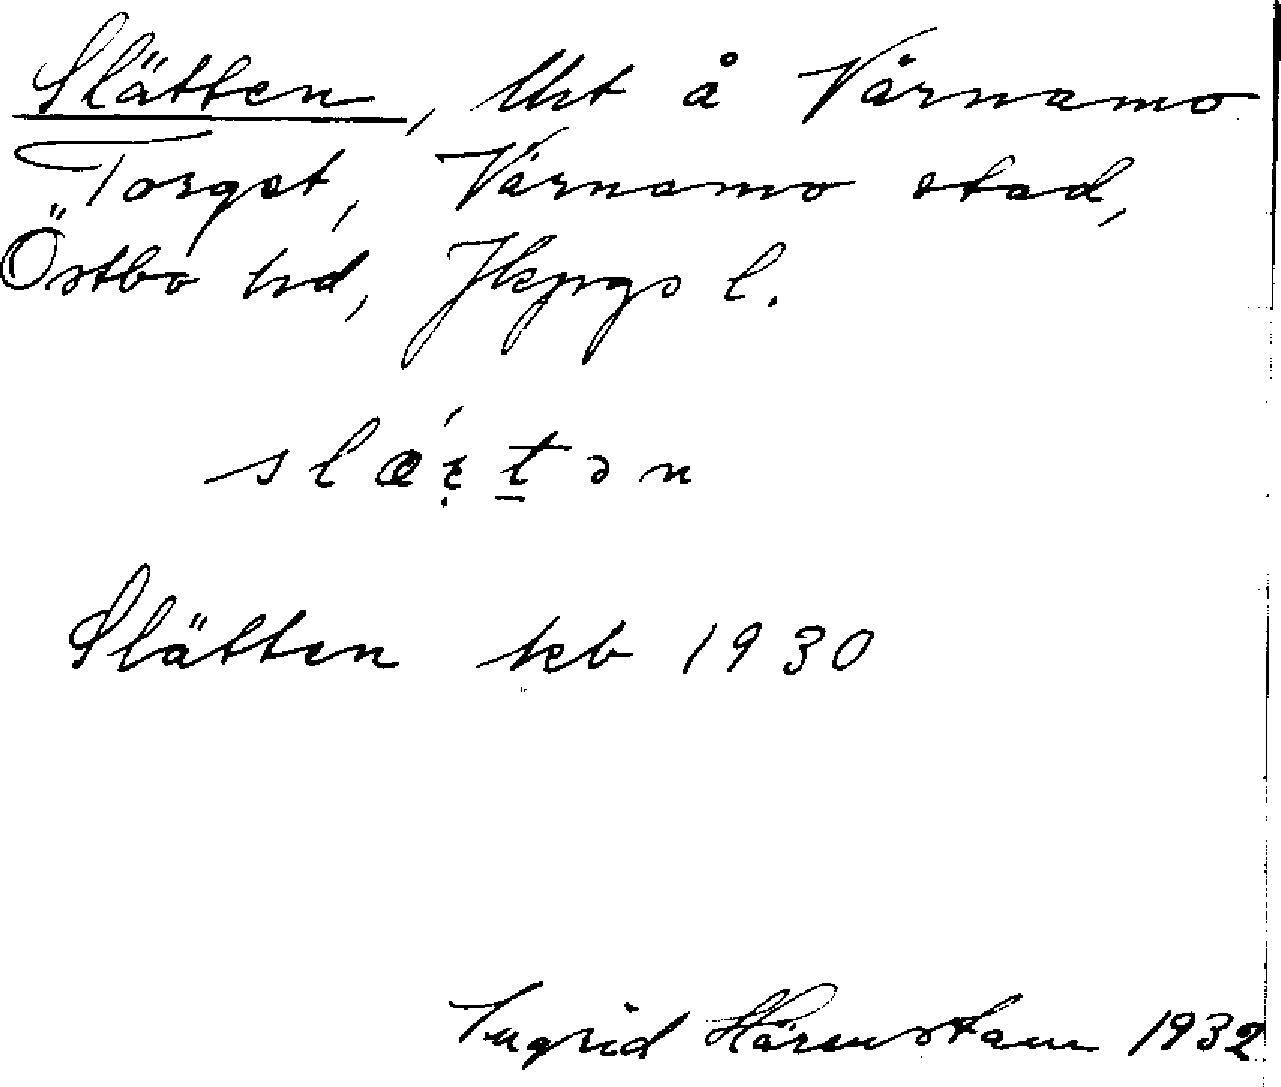 Slätten, lht å Värnamo
Torget, Värnamo stad,
Östbo hd, Jkpgs l.
Slätten kb 1930
Ingrid Härenstam 1932